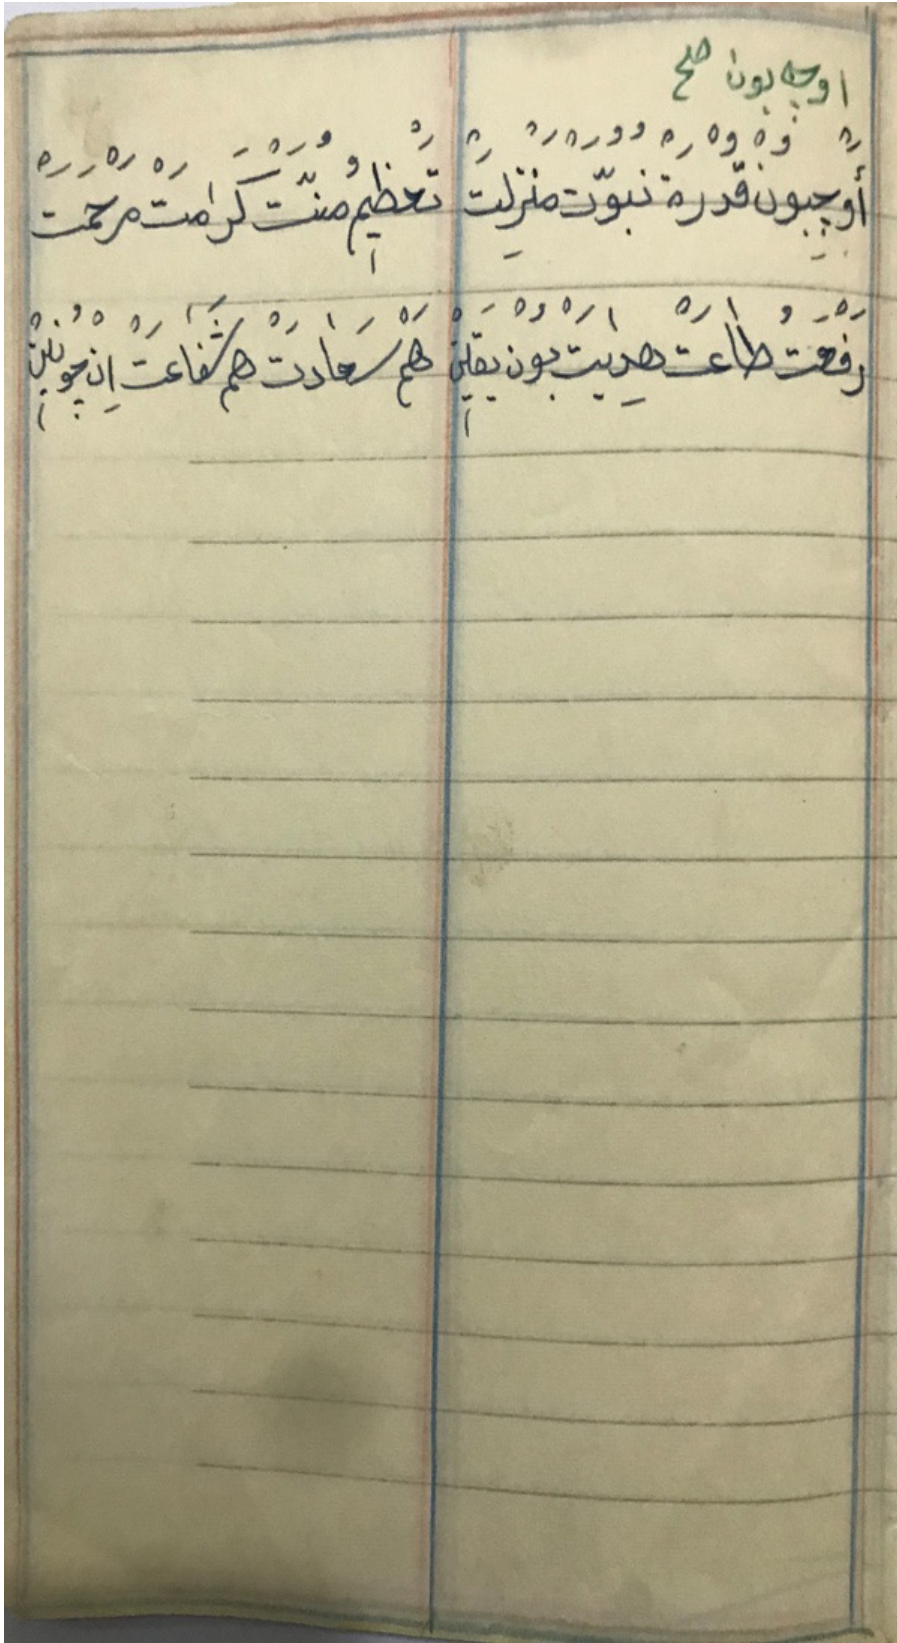 اوچبون صح
أوچبون قدرة نبوّت منزلت تعظيم منّت كرامت مرحمت
رفعت طاعت هديت بون يقين هم سعادت هم شفاعت إن چون